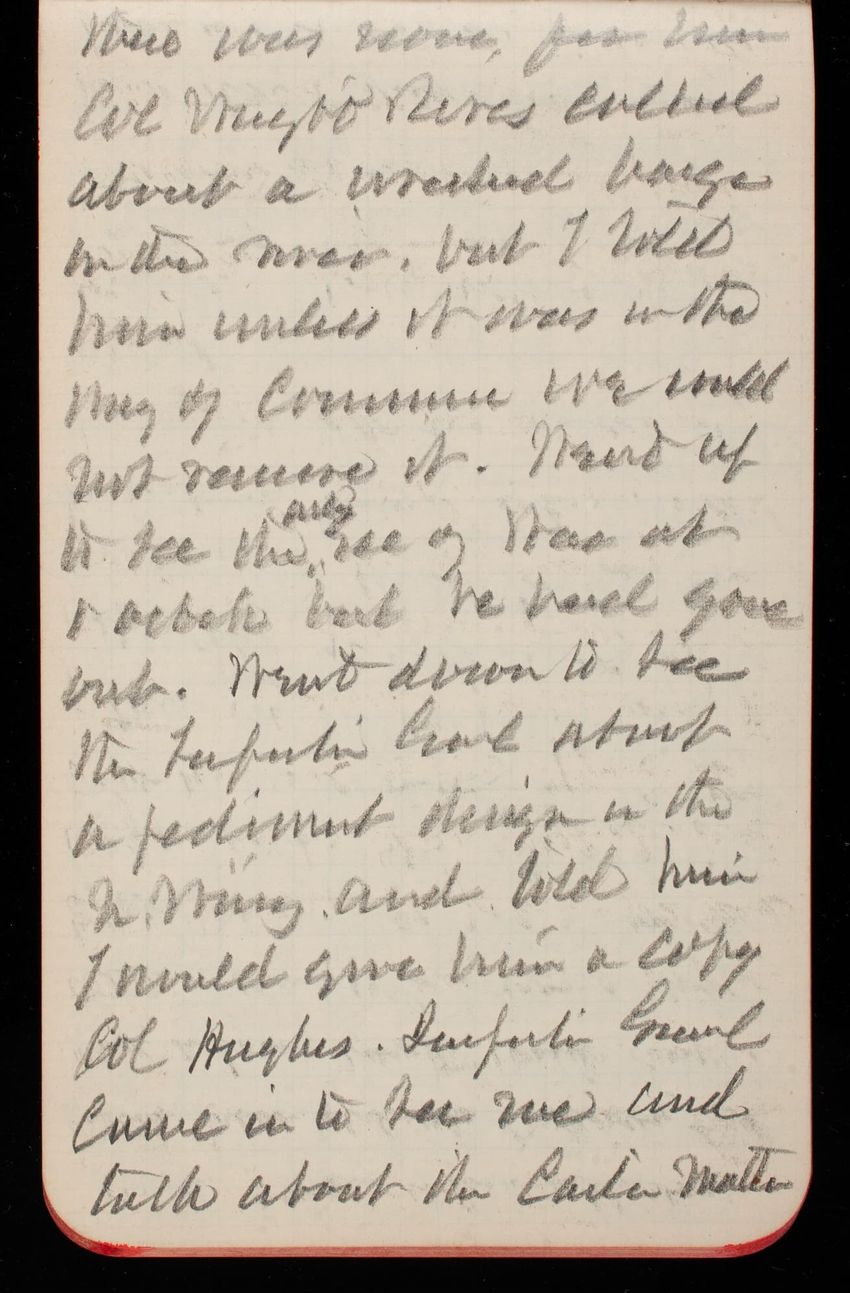 there was none,
Col Wright Rives called
about a wrecked barge
in the river, but I told
him unless it was in the
way of Commerce we could
not remove it. Went up
to see the actg Sec of War at
oclock but he had gone
out. Went down to see
the Inspector Genl about
a pediment design in the
N. Wing and told him
I would give him a copy
Col Hughes. Inspector Genl
Came in to see me and
talk about the Carter Matter